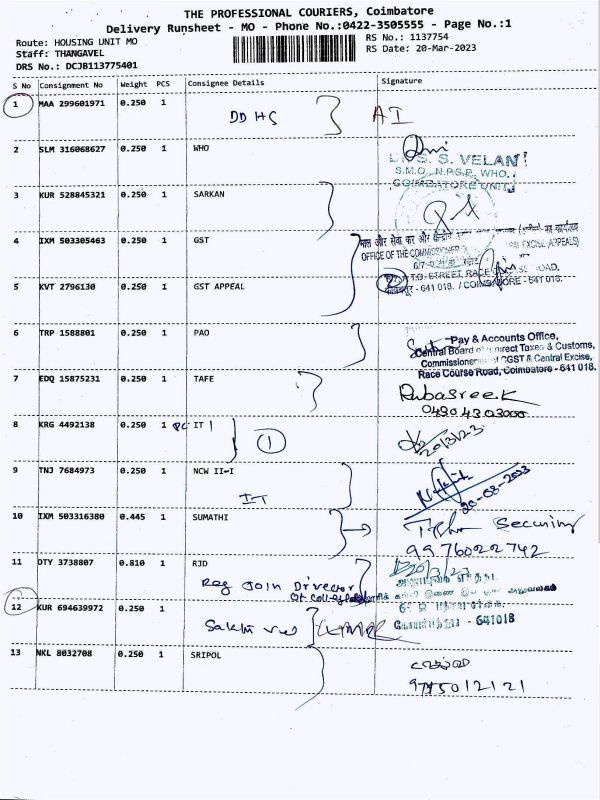 THE PROFESSIONAL COURIERS, Coimbatore
Delivery Runsheet - MO - Phone No.:0422-3505555 - Page No.:1
Route: HOUSING UNIT MO
RS No.: 1137754
Staff: THANGAVEL
RS Date: 20-Mar-2023
DRS No.: DCJB113775401
S No Consignment No Weight PCS Consignee Details Signature
1 MAA 299601971 0.250 1
DD HS AI
2 SLM 316068627 0.250 1 WHO
S. VELAN
S.M.O., N.P.S.P., WHO.
COIMBATORE UNIT
3 KUR 528845321 0.250 1 SARKAN
4 IXM 503305463 0.250 1 GST
माल और सेवा कर और केन्द्रीय
OFFICE OF THE COMMISSIONER EXCISE (APPEALS)
STREET, RACE COURSE ROAD,
- 641 018. / COIMBATORE - 641 018.
5 KVT 2796130 0.250 1 GST APPEAL
2
6 TRP 1588801 0.250 1 PAO
Pay & Accounts Office,
Central Board of Indirect Taxes & Customs,
Commissionerate of CGST & Central Excise,
Race Course Road, Coimbatore - 641 018.
7 EDQ 15875231 0.250 1 TAFE
Rubasree.K
04304303000
8 KRG 4492138 0.250 1 IT 1
1
20/3/23
9 TNJ 7684973 0.250 1 NCW II-I
IT
20-03-2023
10 IXM 503316380 0.445 1 SUMATHI
Security
9976022742
11 OTY 3738807 0.810 1 RJD
Reg Join Director
20/3/23
641018
12 KUR 694639972 0.250 1
Sakthi vel
13 NKL 8032708 0.250 1 SRIPOL
9715012121